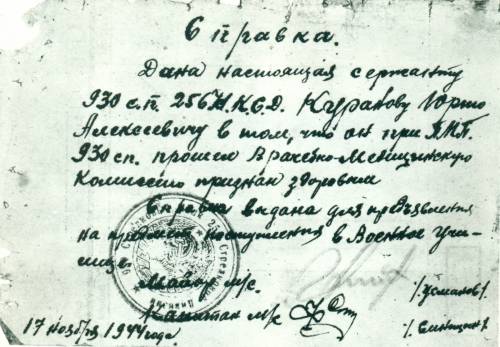 Справка.
Дана настоящая сержанту
930 с.п. 256 Н.К.С.Д. Куранову Юрию
Алексеевичу в том, что он при П.М.П.
930 сп. прошел Врачебно-Медицинскую
Комиссию признан здоровым
Справка выдана для предъявления
на предмет поступления в Военное Учи-
лище.
Майор м/с. /Усманов/.
Капитан м/с
17 ноября 1944 года